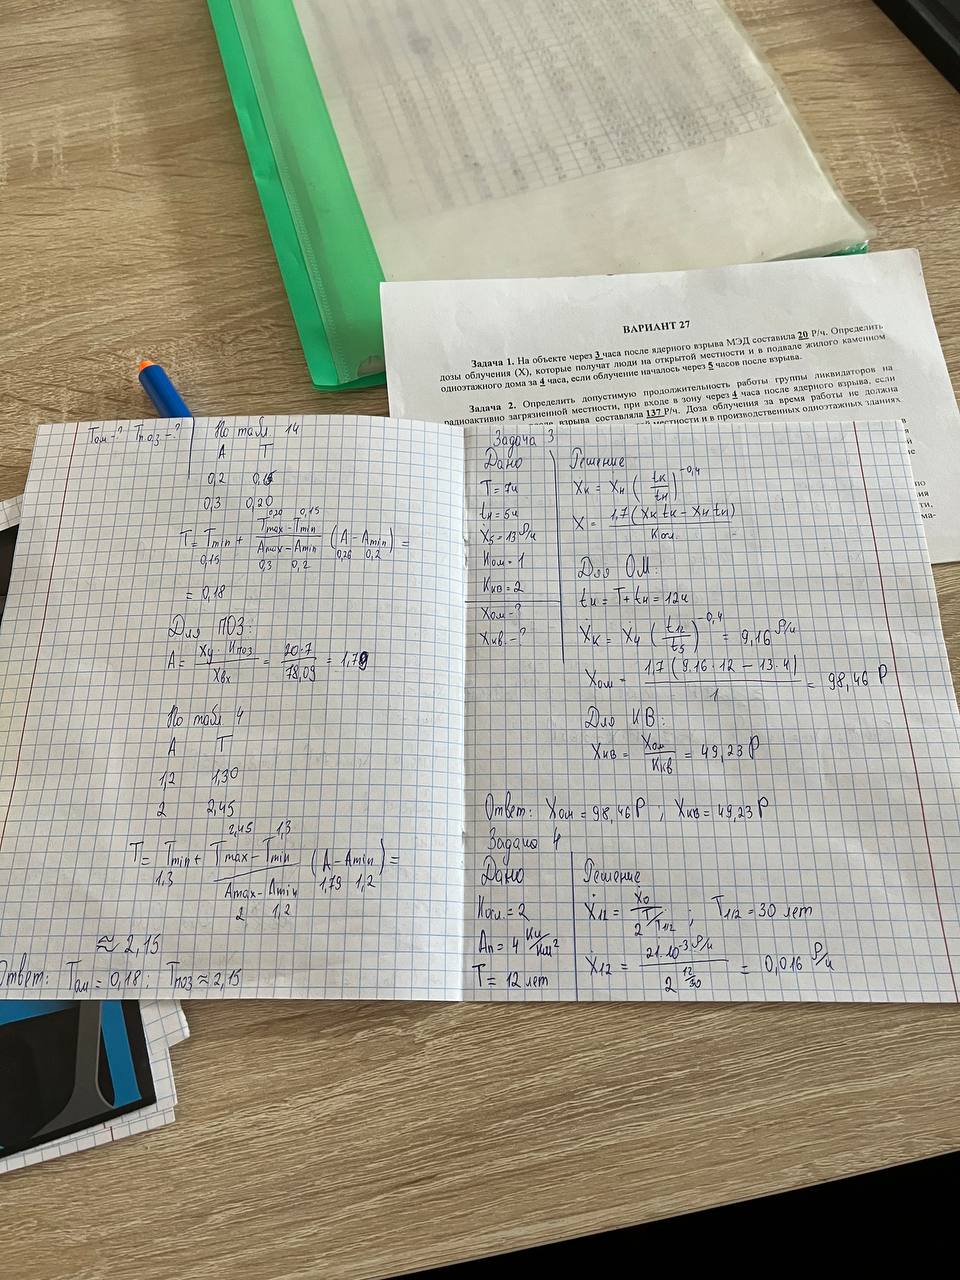 ВАРИАНТ 27
Задача 1. На объекте через 3 часа после ядерного взрыва МЭД составила 20 Р/ч. Определить
дозы облучения (Х), которые получат люди на открытой местности и в подвале жилого каменном
одноэтажного дома за 4 часа, если облучение началось через 5 часов после взрыва.
Задача 2. Определить допустимую продолжительность работы группы ликвидаторов на
радиоактивно загрязненной местности, при входе в зону через 4 часа после ядерного взрыва, если
взрыва составляла 137 Р/ч. Доза облучения за время работы не должна
местности и в производственных одноэтажных зданиях
Том -? Тпоз -?
По табл 14
А Т
0,2 0,15
0,3 0,20
0,20 0,15
T = Tmin + Tmax - Tmin / Amax - Amin (A - Amin) =
0,15 0,3 0,2 0,26 0,2
= 0,18
Для ПОЗ:
A = Xy · Kпоз / Xвх = 20·7 / 78,09 = 1,79
По табл 4
А Т
1,2 1,30
2 2,45
2,45 1,3
T = Tmin + Tmax - Tmin / Amax - Amin (A - Amin) =
1,3 2 1,2 1,79 1,2
≈ 2,15
Ответ: Том = 0,18; Тпоз ≈ 2,15
Задача 3
Дано
T = 7ч
tн = 5ч
X5 = 13 Р/ч
Kом = 1
Kкв = 2
Xом - ?
Xкв. - ?
Решение
Xк = Xн (tк/tн)^-0,4
X = 1,7(Xк tк - Xн tн) / Kосл.
Для ОМ:
tк = T + tн = 12ч
Xк = X4 (t12/t5)^-0,4 = 9,16 Р/ч
Xом = 1,7(9.16·12 - 13·4) / 1 = 98,46 Р
Для КВ:
Xкв = Xом/Kкв = 49,23 Р
Ответ: Xом = 98,46 Р ; Xкв = 49,23 Р
Задача 4
Дано
Kосл. = 2
Aп = 4 Ки/км²
T = 12 лет
Решение
Ẋ12 = Ẋ0 / 2^T/T1/2 ; T1/2 = 30 лет
Ẋ12 = 21·10^-3 Р/ч / 2^12/30 = 0,016 Р/ч